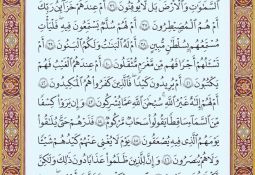 ٱلسَّمَٰوَٰتِ وَٱلْأَرْضَ بَل لَّا يُوقِنُونَ ۝٣٦ أَمْ عِندَهُمْ خَزَآئِنُ رَبِّكَ
أَمْ هُمُ ٱلْمُصَۣيْطِرُونَ ۝٣٧ أَمْ لَهُمْ سُلَّمٌ يَسْتَمِعُونَ فِيهِ فَلْيَأْتِ
مُسْتَمِعُهُم بِسُلْطَٰنٍ مُّبِينٍ ۝٣٨ أَمْ لَهُ ٱلْبَنَٰتُ وَلَكُمُ ٱلْبَنُونَ ۝٣٩ أَمْ
تَسْـَٔلُهُمْ أَجْرًا فَهُم مِّن مَّغْرَمٍ مُّثْقَلُونَ ۝٤٠ أَمْ عِندَهُمُ ٱلْغَيْبُ فَهُمْ
يَكْتُبُونَ ۝٤١ أَمْ يُرِيدُونَ كَيْدًا فَٱلَّذِينَ كَفَرُوا۟ هُمُ ٱلْمَكِيدُونَ ۝٤٢
أَمْ لَهُمْ إِلَٰهٌ غَيْرُ ٱللَّهِ سُبْحَٰنَ ٱللَّهِ عَمَّا يُشْرِكُونَ ۝٤٣ وَإِن يَرَوْا۟ كِسْفًا
مِّنَ ٱلسَّمَآءِ سَاقِطًا يَقُولُوا۟ سَحَابٌ مَّرْكُومٌ ۝٤٤ فَذَرْهُمْ حَتَّىٰ يُلَٰقُوا۟
يَوْمَهُمُ ٱلَّذِي فِيهِ يُصْعَقُونَ ۝٤٥ يَوْمَ لَا يُغْنِي عَنْهُمْ كَيْدُهُمْ شَيْـًٔا
وَلَا هُمْ يُنصَرُونَ ۝٤٦ وَإِنَّ لِلَّذِينَ ظَلَمُوا۟ عَذَابًا دُونَ ذَٰلِكَ وَلَٰكِنَّ